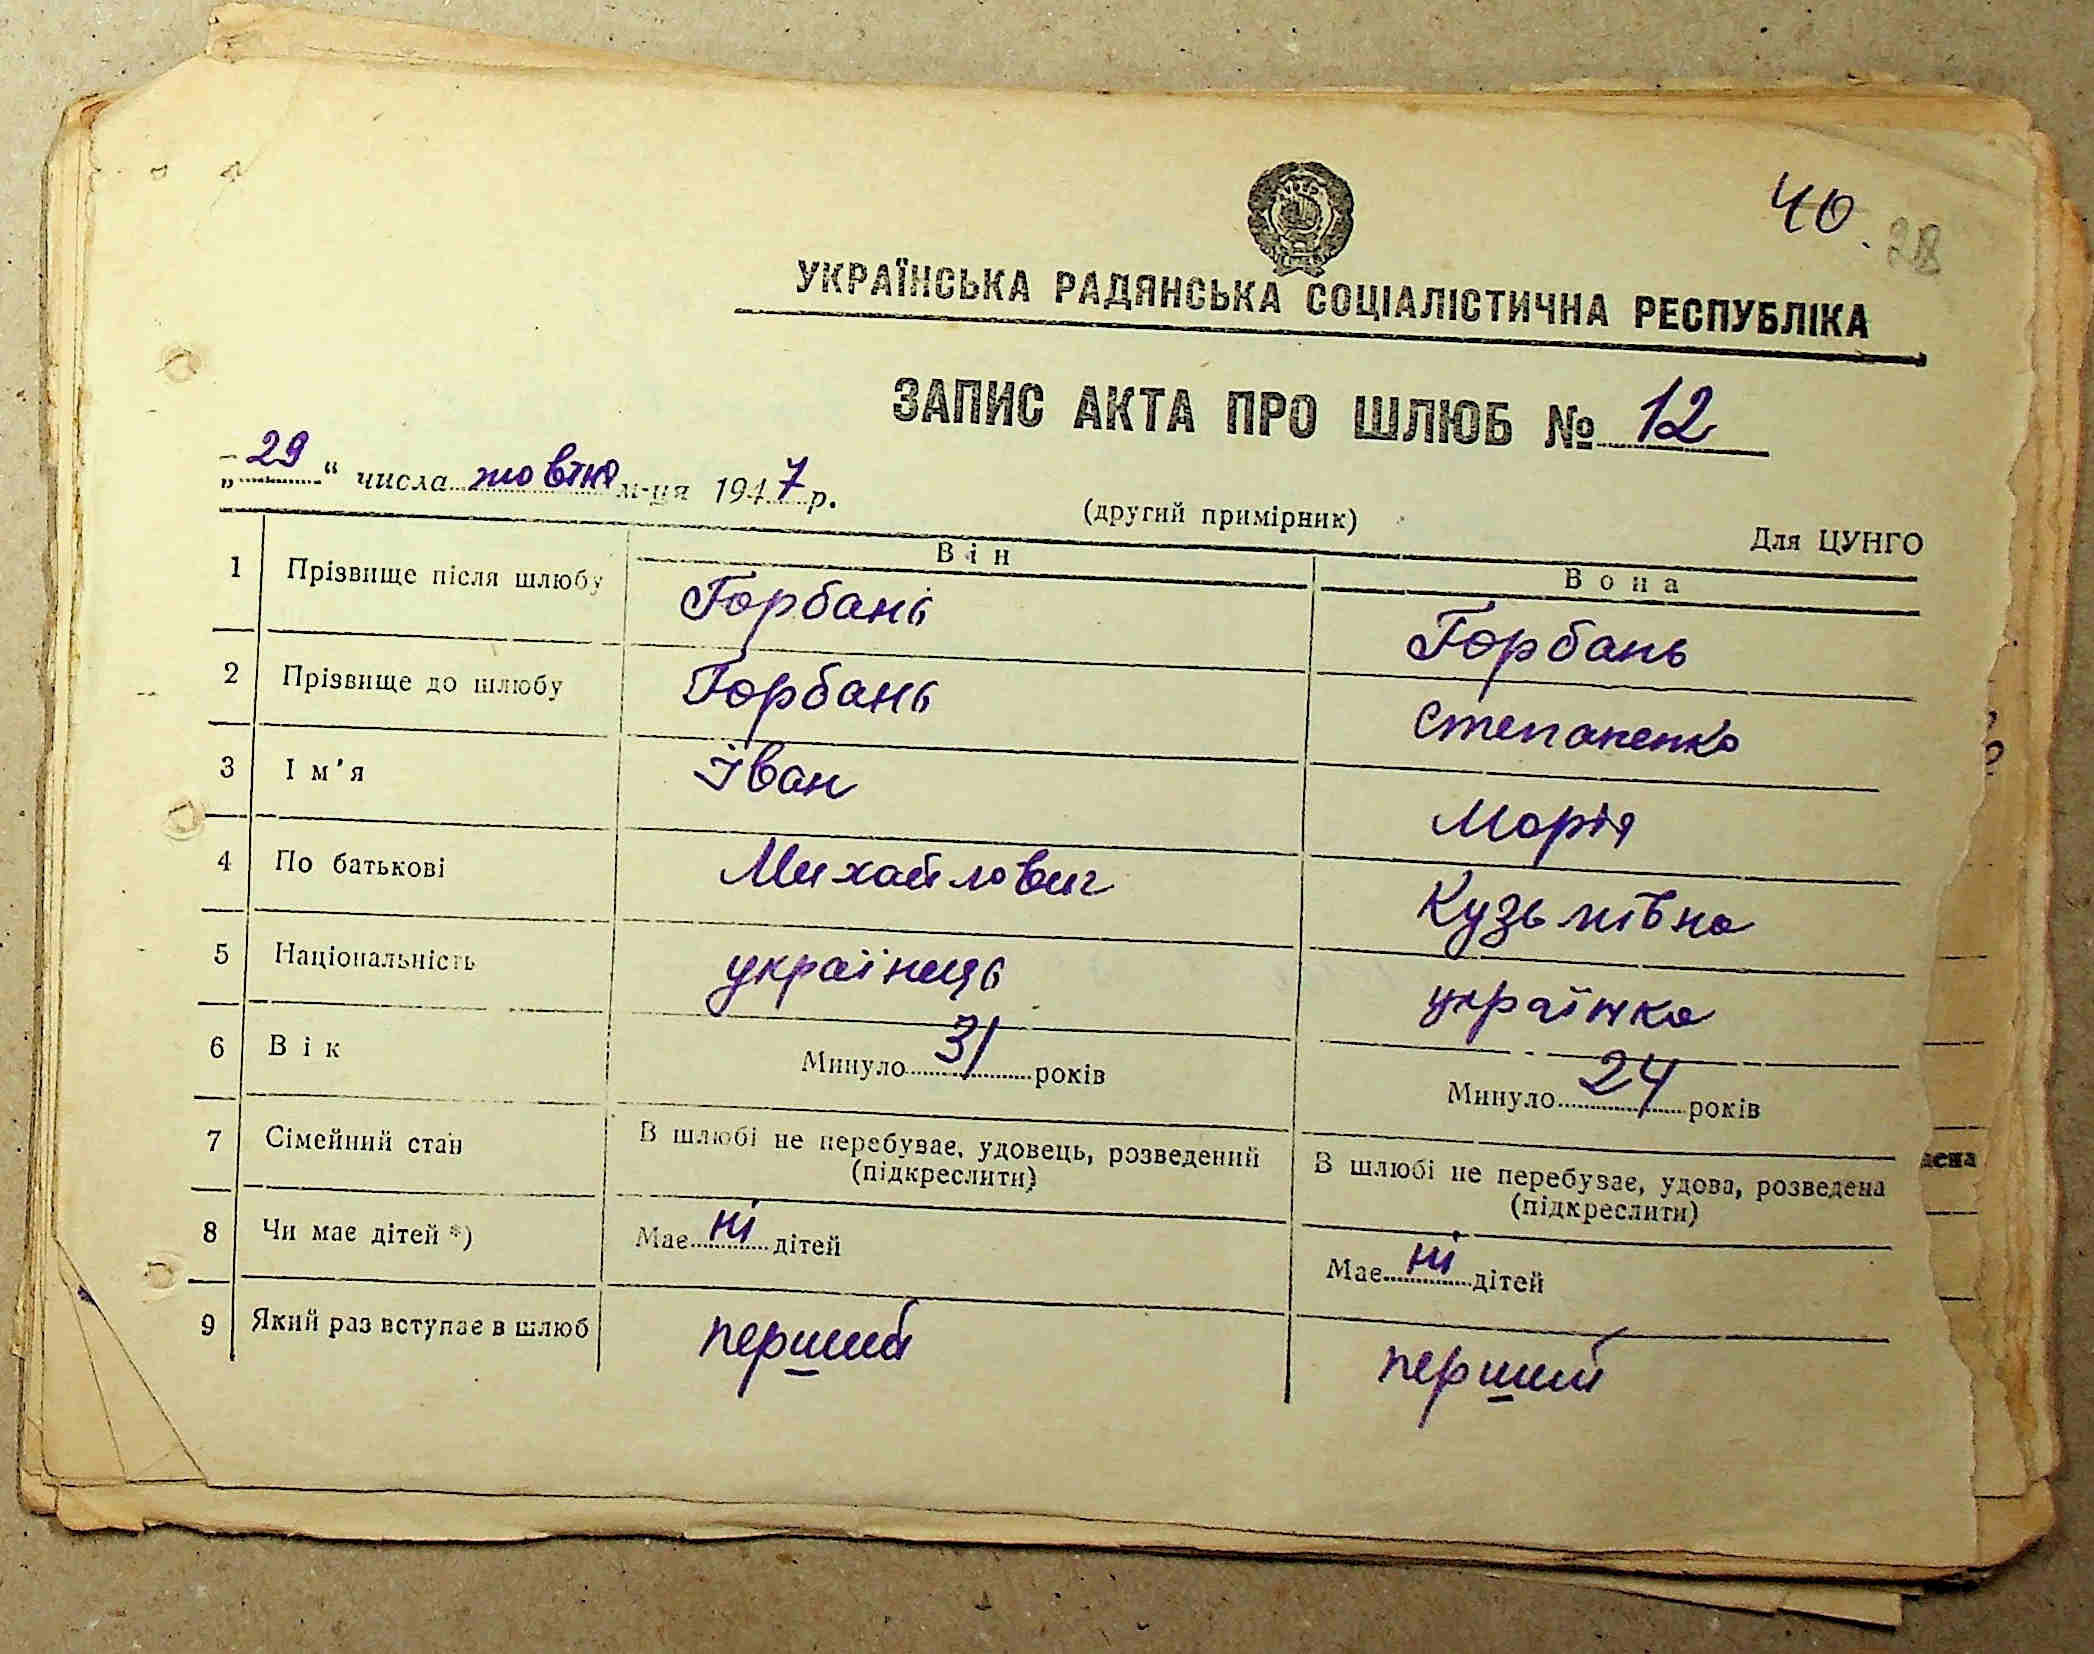 40. 28
УКРАЇНСЬКА РАДЯНСЬКА СОЦІАЛІСТИЧНА РЕСПУБЛІКА
ЗАПИС АКТА ПРО ШЛЮБ № 12
„29“ числа жовтня м-ця 1947 р.
(другий примірник)
Для ЦУНГО
Він Вона
1 Прізвище після шлюбу Горбань Горбань
2 Прізвище до шлюбу Горбань Степаненко
3 Ім'я Іван Марія
4 По батькові Михайлович Кузьмівна
5 Національність українець українка
6 Вік Минуло 31 років Минуло 24 років
7 Сімейний стан В шлюбі не перебуває, удовець, розведений В шлюбі не перебуває, удова, розведена
(підкреслити) (підкреслити)
8 Чи має дітей *) Має ні дітей Має ні дітей
9 Який раз вступає в шлюб перший перший